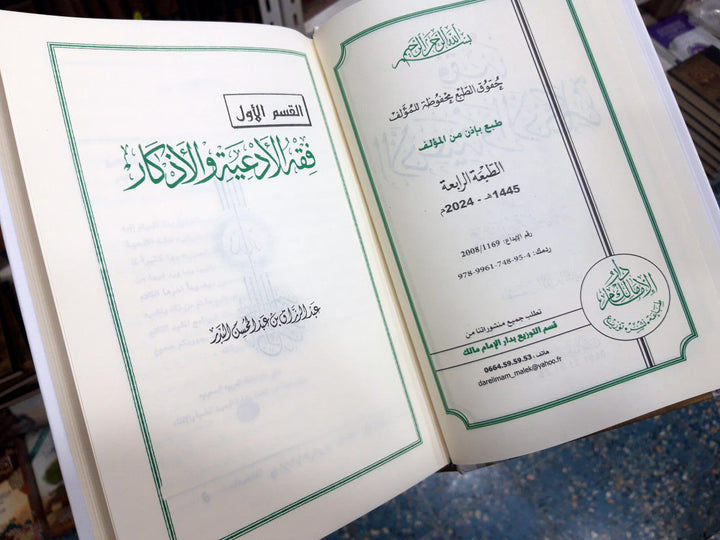 بسم الله الرحمن الرحيم
حقوق الطبع محفوظة للمؤلف
طبع بإذن من المؤلف
الطبعة الرابعة
1445هـ - 2024م
رقم الإيداع: 2008/1169
ردمك: 4-95-748-9961-978
دار
الإمام مالك
تطلب جميع منشوراتنا من
قسم التوزيع بدار الإمام مالك
هاتف: 0664.59.59.53
darelimam_malek@yahoo.fr
القسم الأول
فقه الأدعية والأذكار
عبد الرزاق بن عبد المحسن البدر